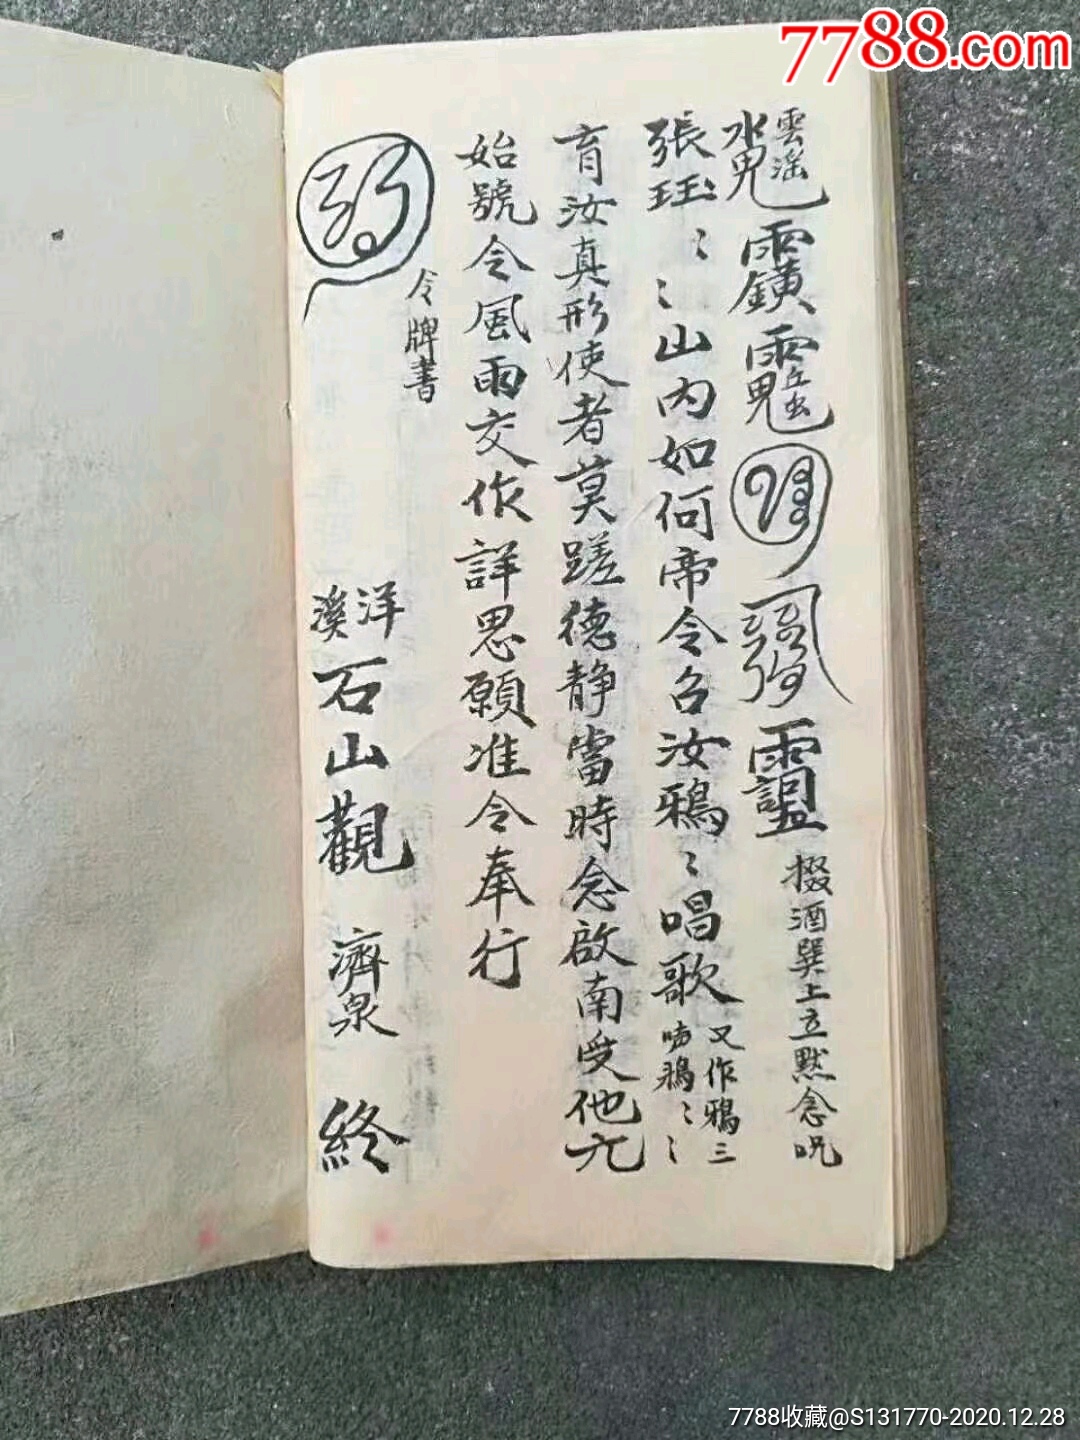 7788.com
雲滛
掇酒巽上立默念呪
張珏〻〻山內如何帝令召汝鴉〻唱歌
又作鴉三
鴉〻〻
育汝真形使者莫蹉德静當時念啟南受他六
始號令風雨交作詳思願准令奉行
令牌書
洋溪石山觀 濟泉 終
7788收藏@S131770-2020.12.28